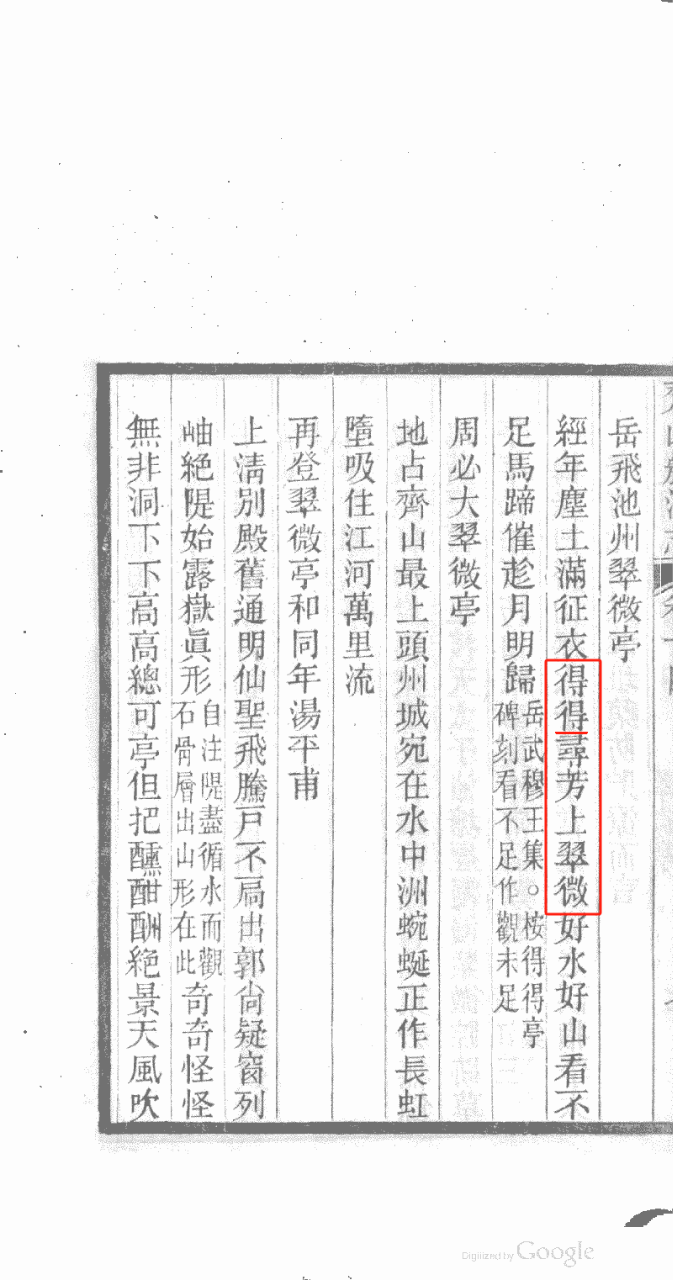 岳飛池州翠微亭
經年塵土滿征衣得得尋芳上翠微好水好山看不
足馬蹄催趁月明歸岳武穆王集。桉得得亭
碑刻看不足作觀未足
周必大翠微亭
地占齊山最上頭州城宛在水中洲蜿蜒正作長虹
墮吸住江河萬里流
再登翠微亭和同年湯平甫
上淸別殿舊通明仙聖飛騰戸不扃出郭尙疑窗列
岫絶隄始露嶽眞形自注隄盡循水而觀
石骨層出山形在此奇奇怪怪
無非洞下下高高總可亭但把醺酣酬絶景天風吹
Digitized by Google